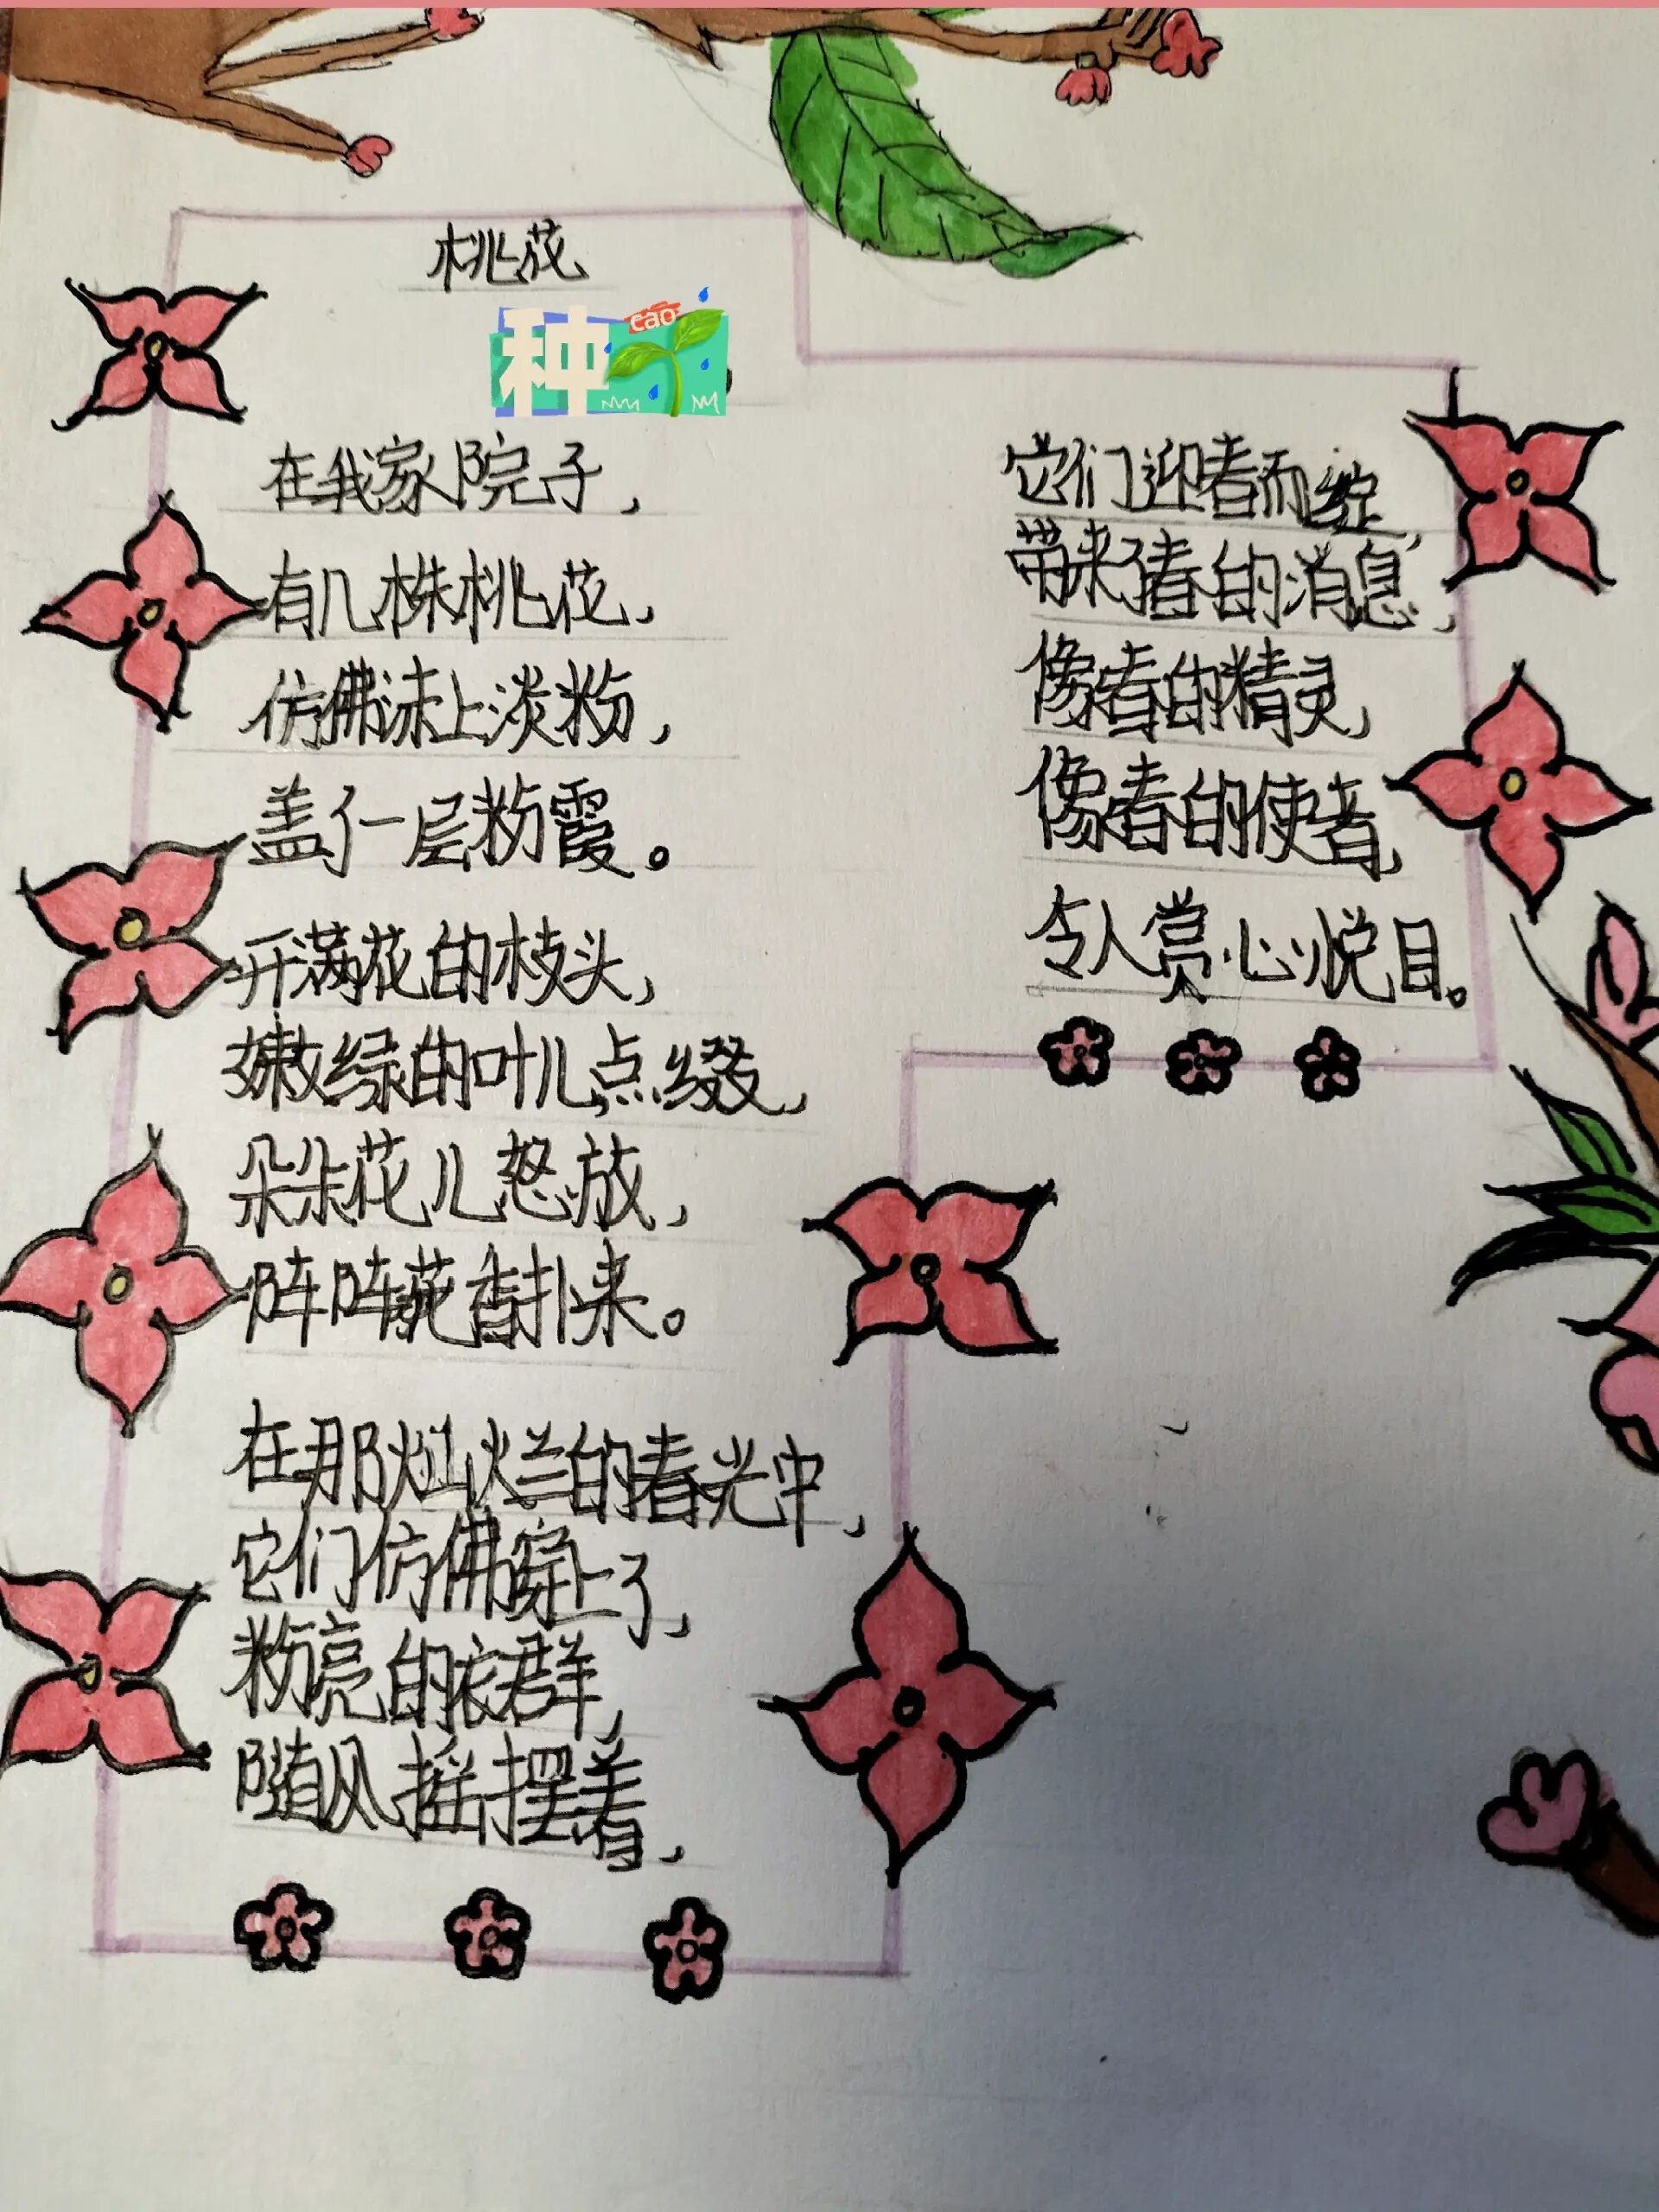 桃花
种
cao
在我家院子，
有几株桃花，
仿佛沫上淡粉，
盖了一层粉霞。
开满花的枝头，
嫩绿的叶儿点缀，
朵朵花儿怒放，
阵阵花香扑来。
在那灿烂的春光中，
它们仿佛穿上了，
粉亮的衣群，
随风摇摆着，
它们迎春而绽，
带来了春的消息，
像春的精灵，
像春的使者，
令人赏心悦目。